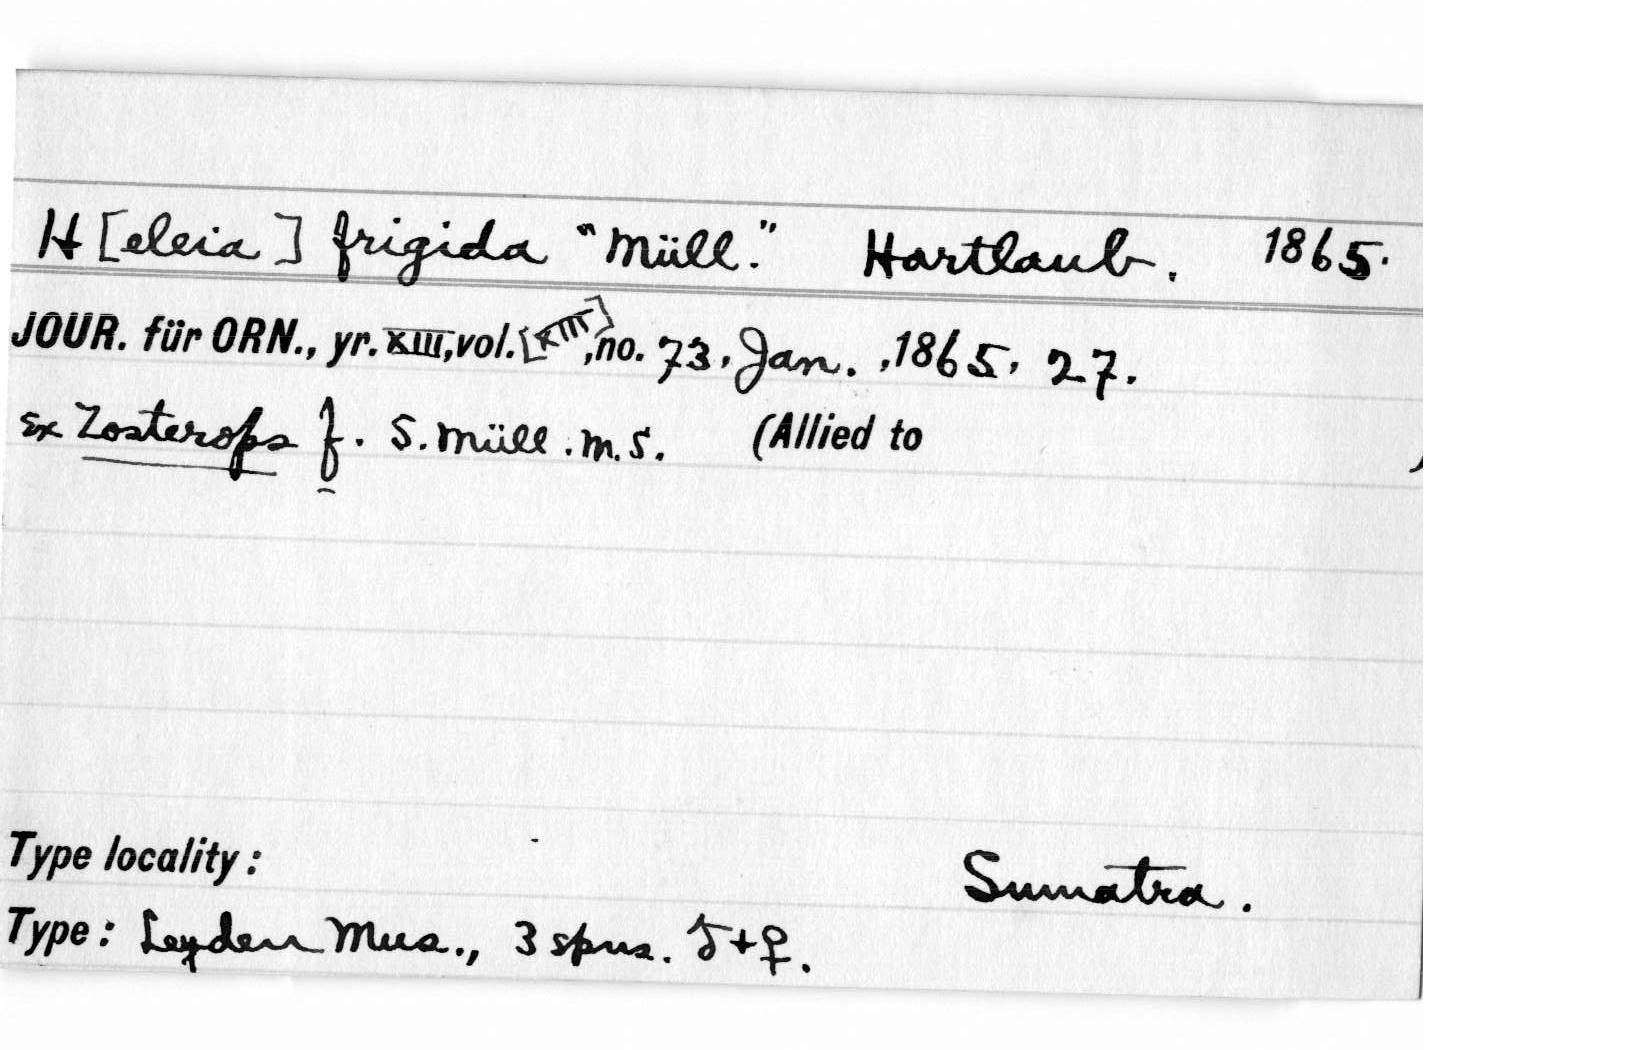 H[eleia] frigida "Müll." Hartlaub. 1865.
JOUR. für ORN., yr. XIII, vol. [XIII], no. 73, Jan., 1865, 27.
Ex Zosterops f. S. Müll. m.s. (Allied to )
Type locality: Sumatra.
Type: Leyden Mus., 3 spns. ♂+♀.